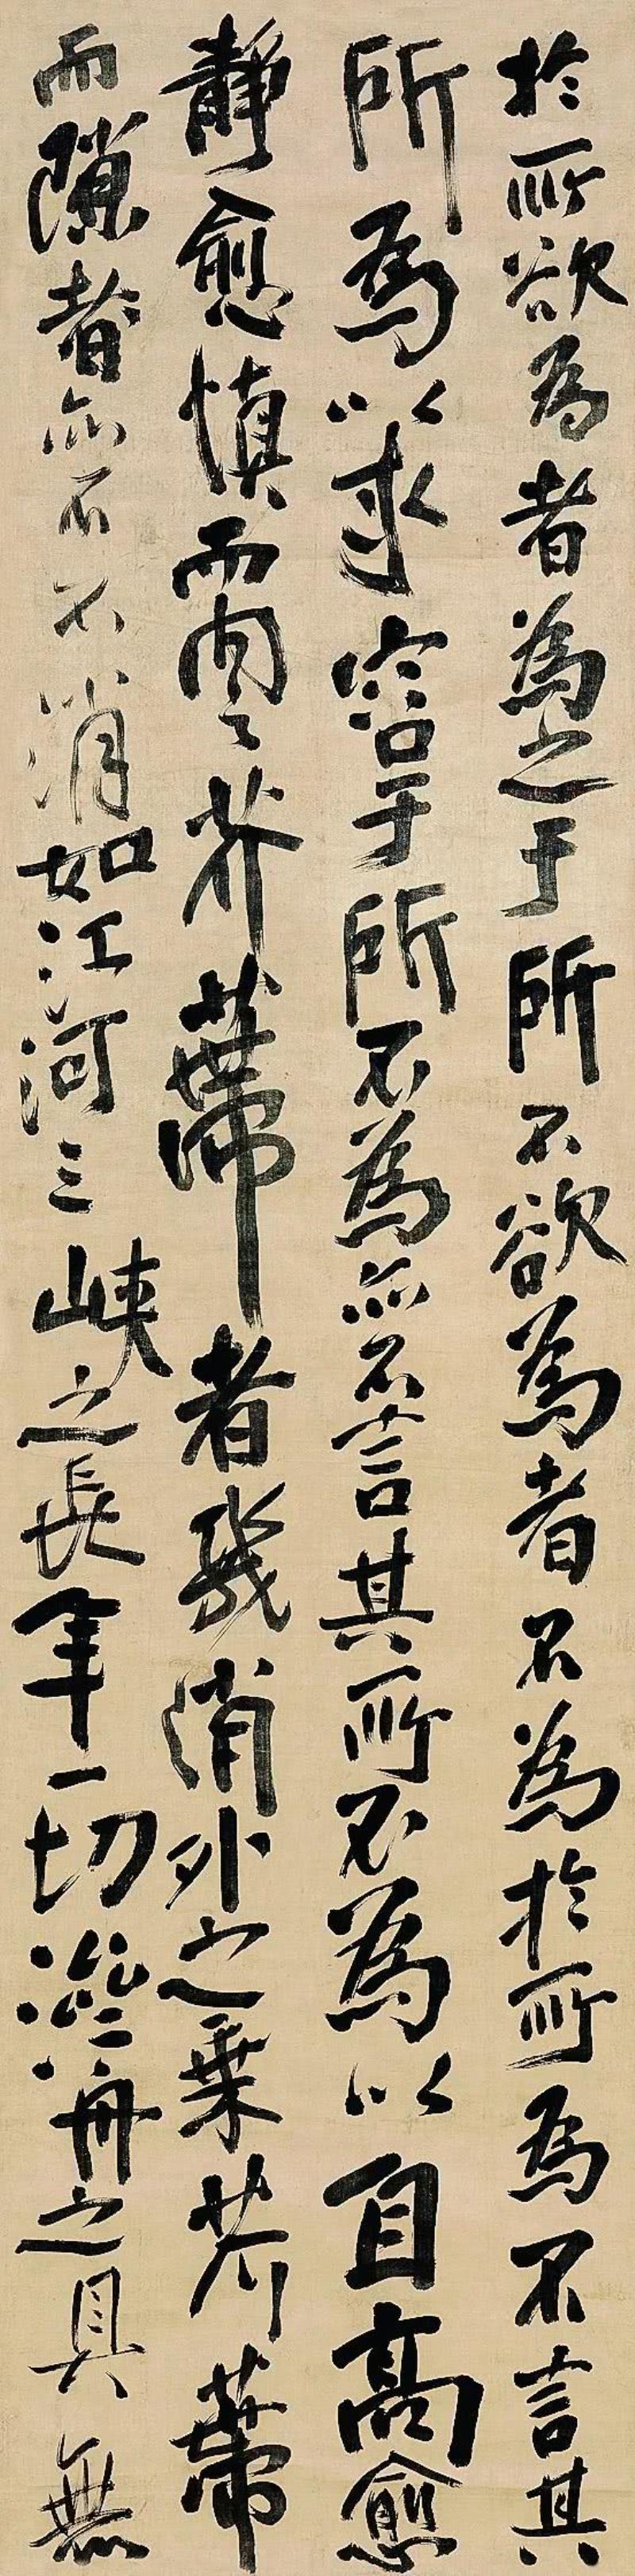 於所欲為者為之于所不欲為者不為於所為不言其
所為以求容于所不為亦不言其所不為以自高愈
靜愈慎而閒芥蔕者幾消外之乘芥蔕
而隙者亦不不消如江河三峽之長年一切濟舟之具無